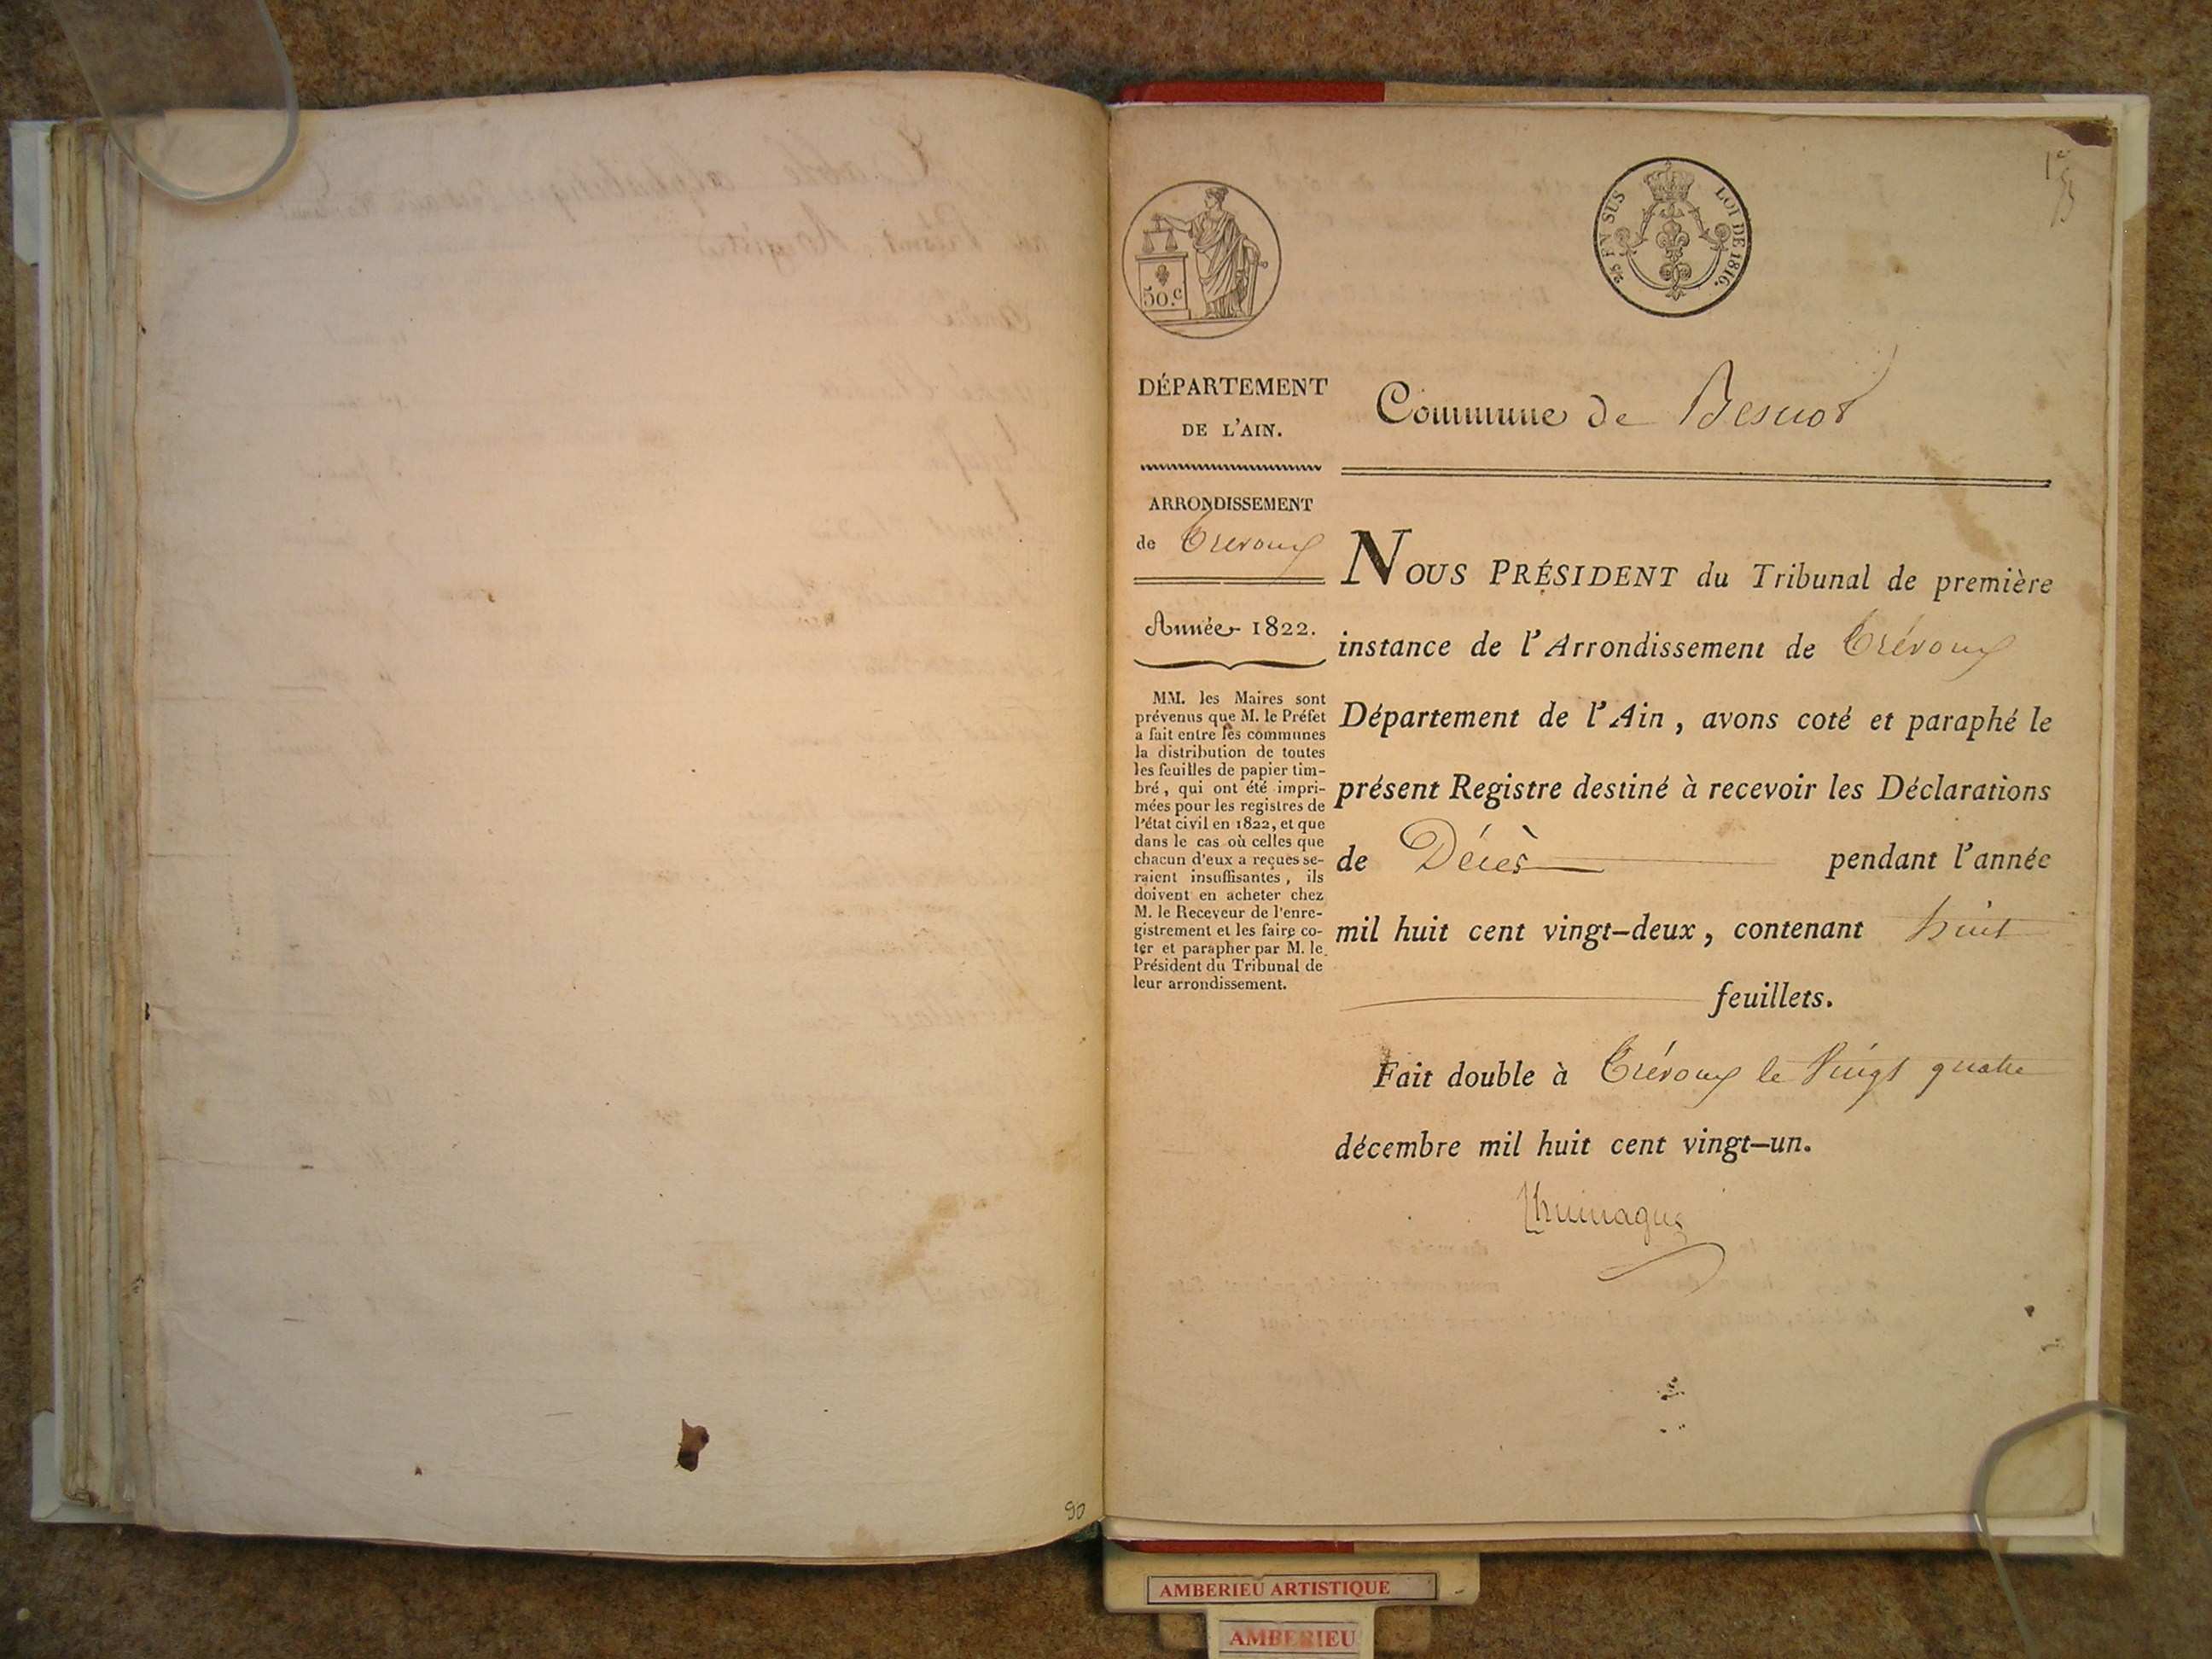 90
50.c
25 EN SUS
LOI DE 1816.
DÉPARTEMENT
DE L'AIN.
Commune de
ARRONDISSEMENT
de Trevoux
Année 1822.
MM. les Maires sont
prévenus que M. le Préfet
a fait entre les communes
la distribution de toutes
les feuilles de papier tim-
bré, qui ont été impri-
mées pour les registres de
l'état civil en 1822, et que
dans le cas où celles que
chacun d'eux a reçues se-
raient insuffisantes, ils
doivent en acheter chez
M. le Receveur de l'enre-
gistrement et les faire co-
ter et parapher par M. le
Président du Tribunal de
leur arrondissement.
NOUS PRÉSIDENT du Tribunal de première
instance de l'Arrondissement de Trévoux
Département de l'Ain, avons coté et paraphé le
présent Registre destiné à recevoir les Déclarations
de Décès pendant l'année
mil huit cent vingt-deux, contenant huit
feuillets.
Fait double à Trévoux le Vingt quatre
décembre mil huit cent vingt-un.
AMBERIEU ARTISTIQUE
AMBERIEU